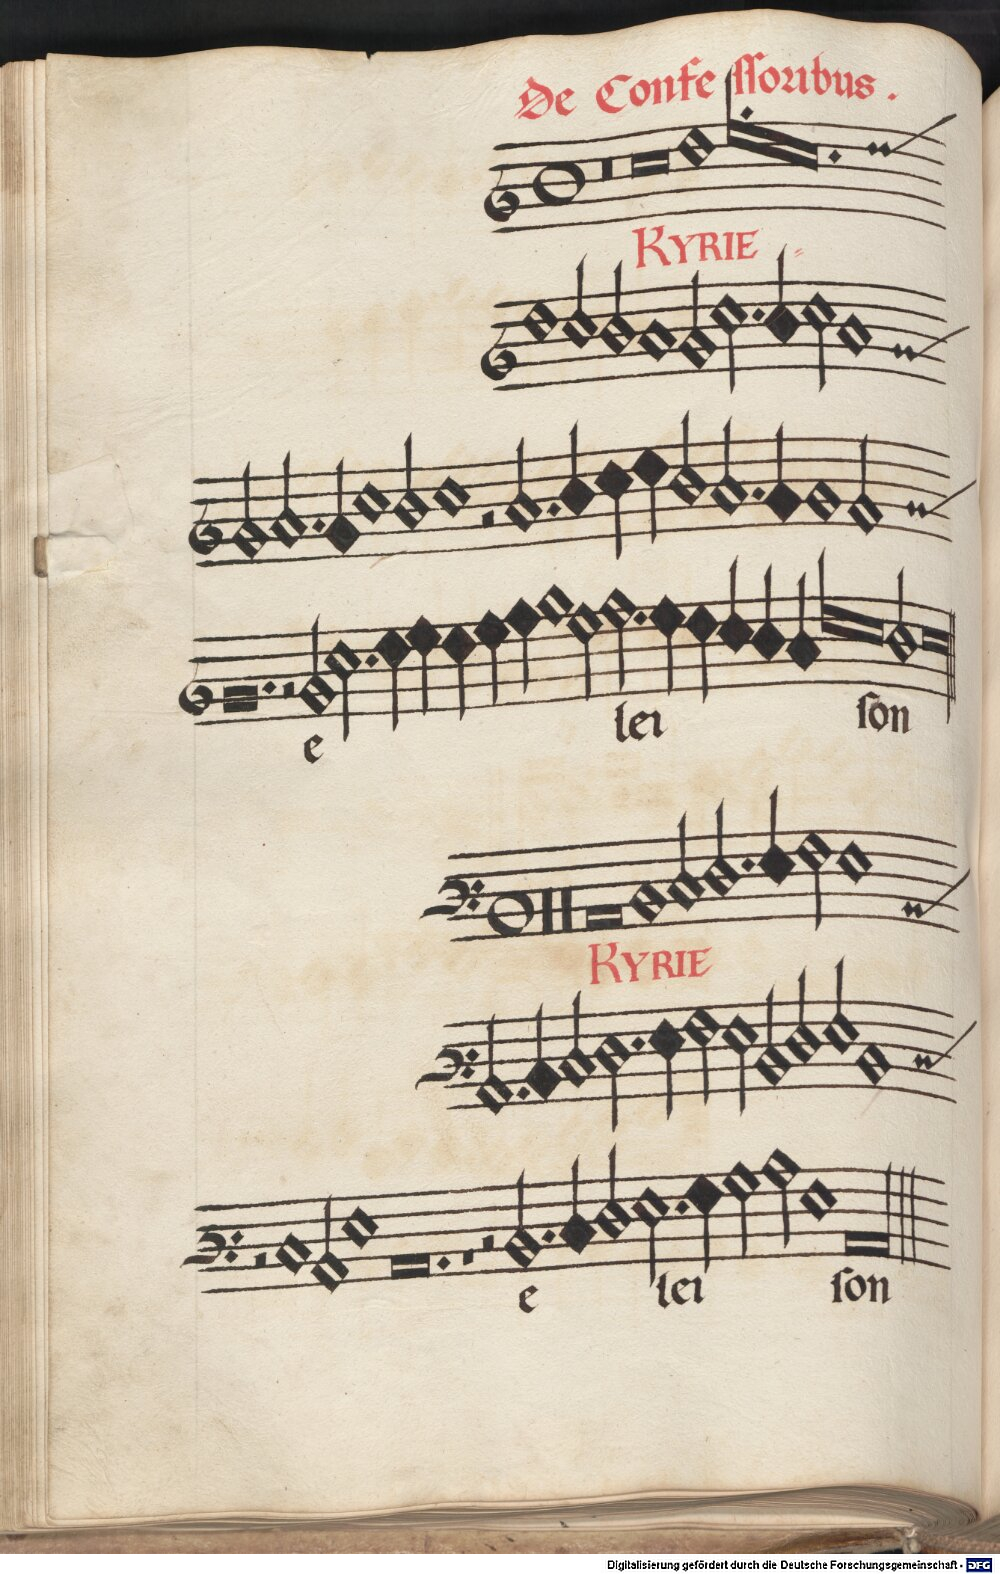 De Confessoribus.
KYRIE
e lei son
KYRIE
e lei son
Digitalisierung gefördert durch die Deutsche Forschungsgemeinschaft - DFG